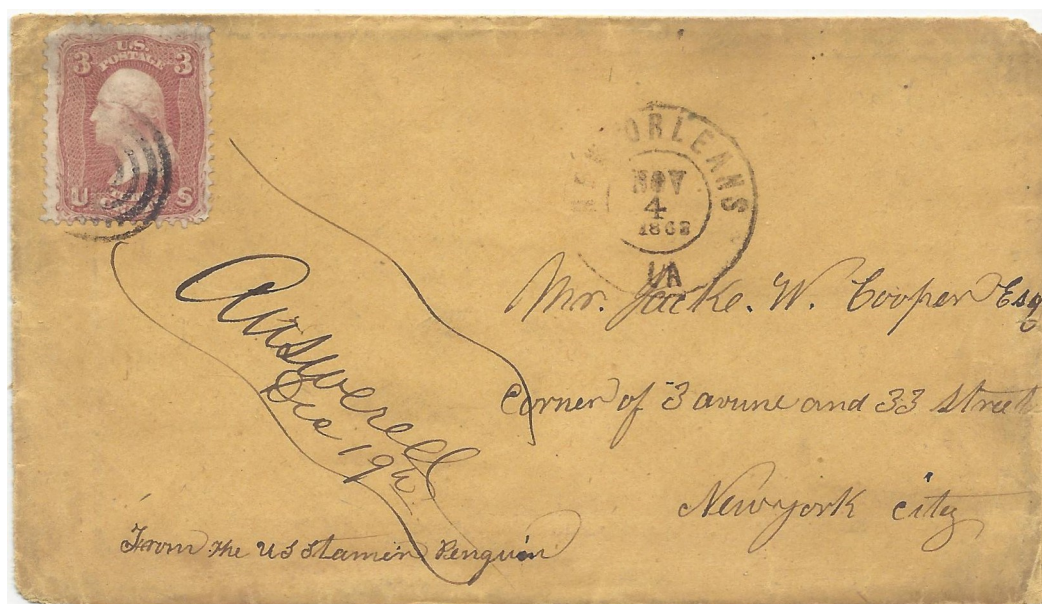 U.S.
POSTAGE
3 3
U S
NEW ORLEANS
NOV
4
LA
Answered
Dec 19th
Mr. Jacke. W. Cooper Esq
Corner of 3 avune and 33 street
New york city
From the US Stamer Penguin